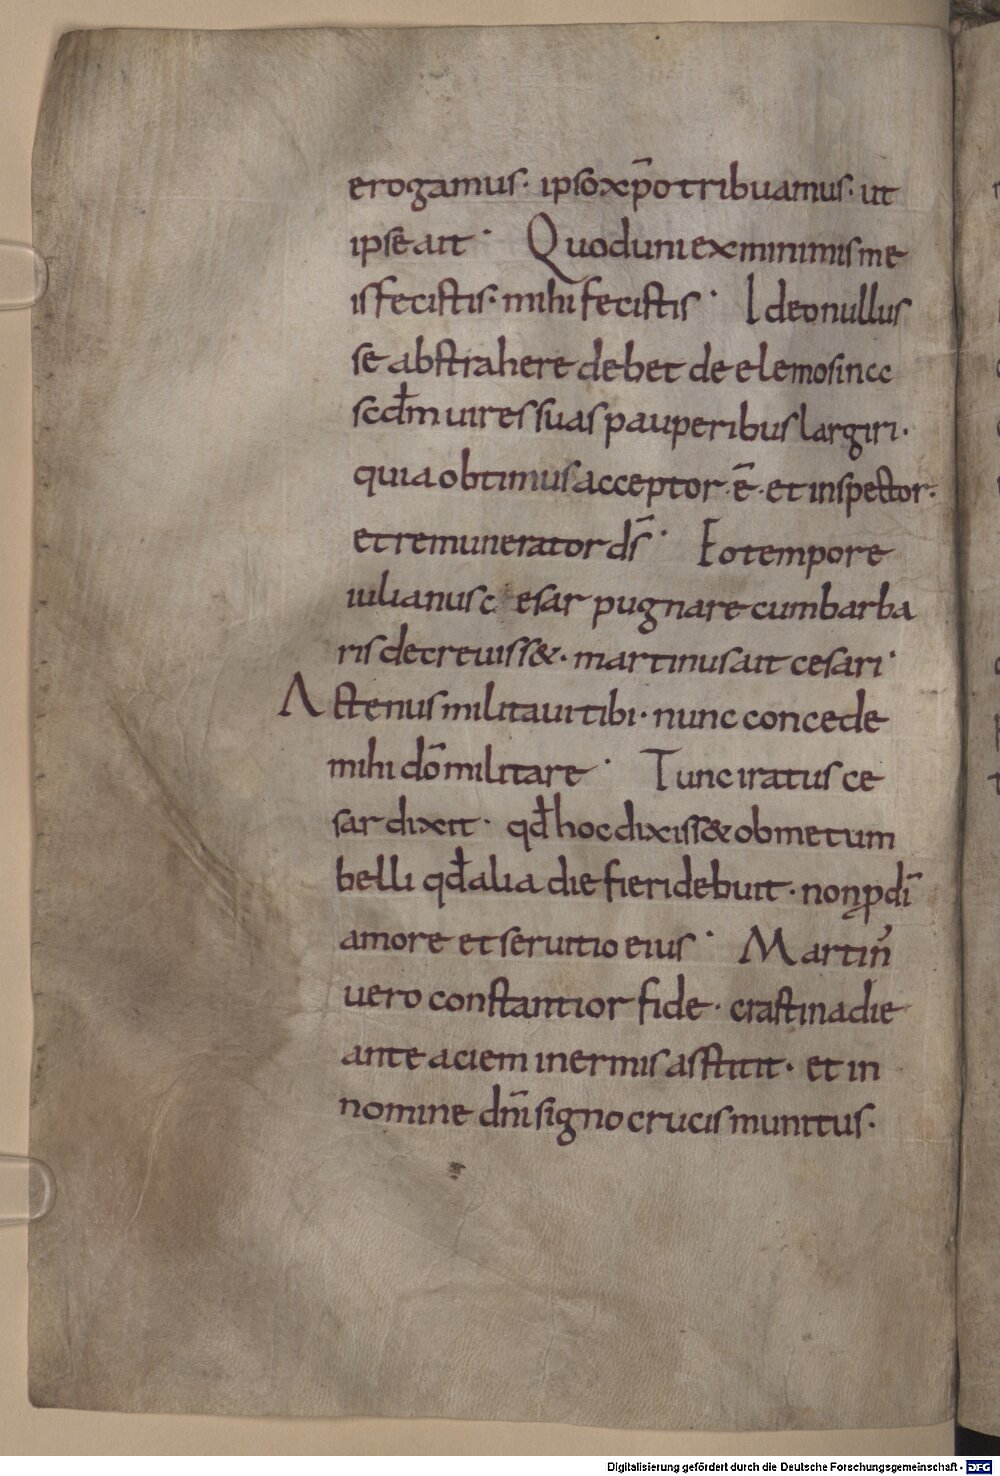 erogamus· ipso xp̄o tribuamus· ut
ipse ait· Quod uni ex minimis me
is fecistis· mihi fecistis· Ideo nullus
se abstrahere debet de elemosina
scdm̄ uires suas pauperibus largiri·
quia obtimus acceptor·ē· et inspector·
et remunerator ds̄· Eo tempore
iulianus c esar pugnare cum barba
ris decreuiss&· martinus ait cesari·
Actenus militaui tibi· nunc concede
mihi dō militare· Tunc iratus ce
sar dixit· qđ hoc dixiss& ob metum
belli qđ alia die fieri debuit· non ꝓ dī
amore et seruitio eius· Martin̄
uero constantior fide· crastina die
ante aciem inermis asstitit· et in
nomine dn̄i signo crucis munitus·
Digitalisierung gefördert durch die Deutsche Forschungsgemeinschaft - DFG